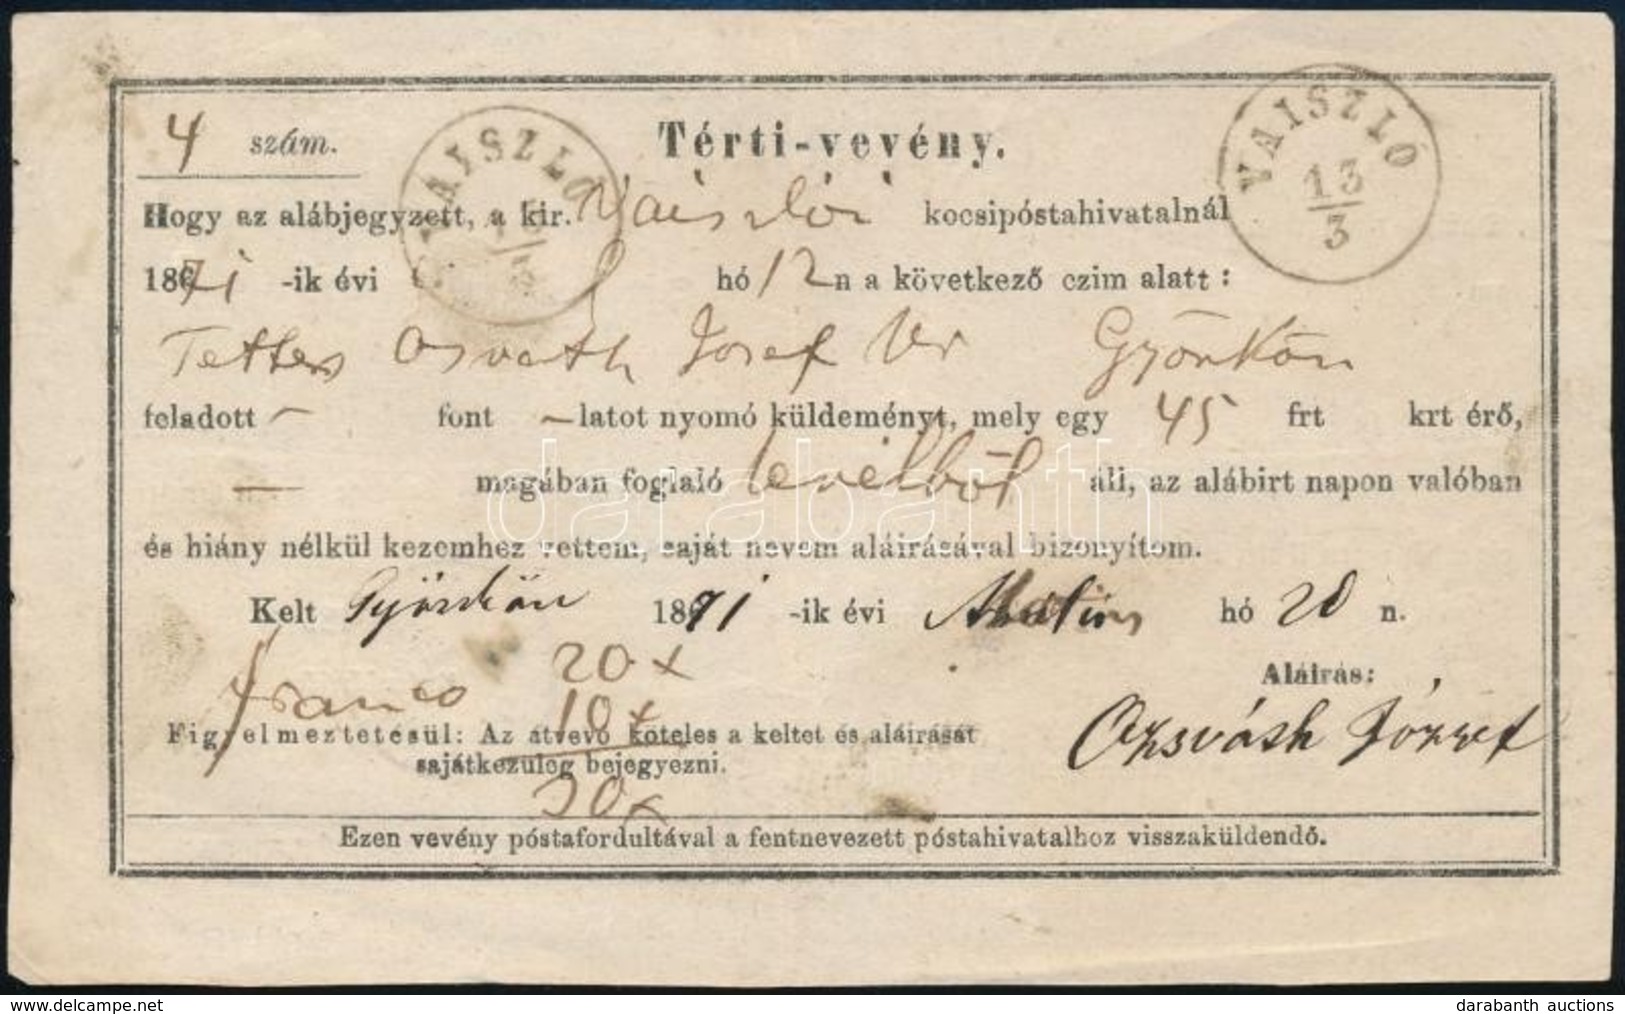 4 szám. Térti-vevény.
VAISZLÓ
VAISZLÓ 13/3
Hogy az alábjegyzett, a kir. Vaiszlói kocsipóstahivatalnál
1871 -ik évi hó 12n a következő czim alatt:
Osvath Josef Ur Gyönkön
feladott – font – latot nyomó küldeményt, mely egy 45 frt krt érő,
— magában foglaló levélböl áll, az alábirt napon valóban
és hiány nélkül kezemhez vettem, saját nevem aláirásával bizonyítom.
Kelt Gyönkön 1871 -ik évi hó 20 n.
franco 20 x
Aláirás:
10 x
Figyelmeztetésül: Az átvevő köteles a keltet és aláirását
sajátkezüleg bejegyezni.
József
30 x
Ezen vevény póstafordultával a fentnevezett póstahivatalhoz visszaküldendő.
darabanth
darabanth auctions